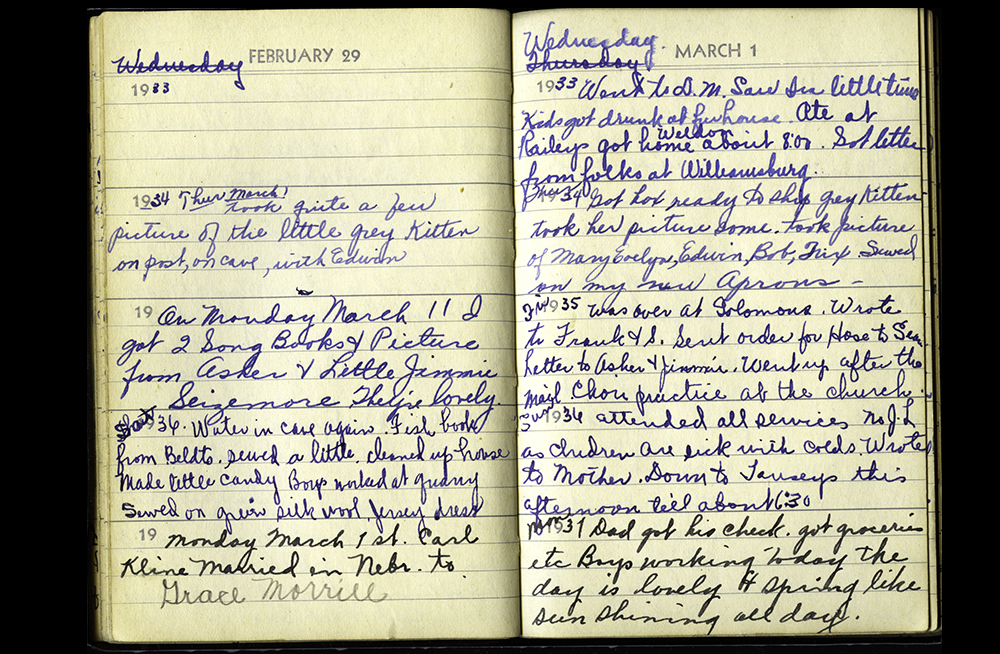 Wednesday FEBRUARY 29
1933
1934 Thur March 1
took quite a few
picture of the little grey Kitten
on post, on cave, with Edwin
19 On Monday March 11 I
got 2 Song Books & Picture
from Asher & Little Jimmie
Seizemore They're lovely
Sat 1936. Water in cave again. Fish book
from Beldts. sewed a little, cleaned up house
Made little candy Boys worked at quarry
Sewed on green silk wool Jersey dress
19 Monday March 1st. Carl
Kline Married in Nebr. to
Grace Morrill
Wednesday
Thursday MARCH 1
1933 Went to D. M. Saw Ira little time
Kids got drunk at funhouse. Ate at
Raileys got home Weldon about 8:00. Got letter
from folks at Williamsburg.
1934 Got box ready to ship grey Kitten
took her picture some. took picture
of Mary Evelyn, Edwin, Bob, Trix Sewed
on my new Aprons
Fri 1935 Was over at Solomons. Wrote
to Frank & S. Sent order for Hose to
Letter to Asher & Jimmie. Went up after the
mail. Choir practice at the church.
Sun 1936 attended all services No J. L
as children are sick with colds. Wrote
to Mother. Down to Tanseys this
afternoon till about 6:30
Mon 1937 Dad got his check. got groceries
etc Boys working today the
day is lovely & spring like
sun shining all day.